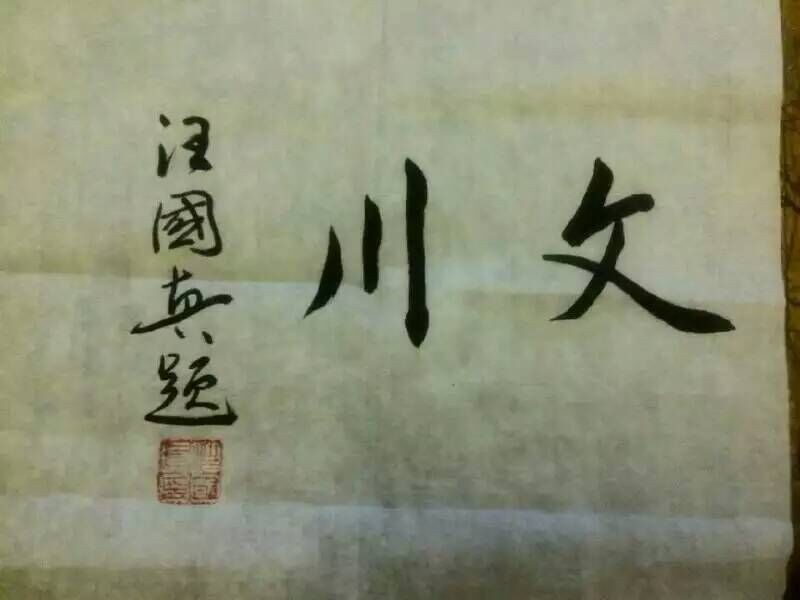 文川
汪國真题